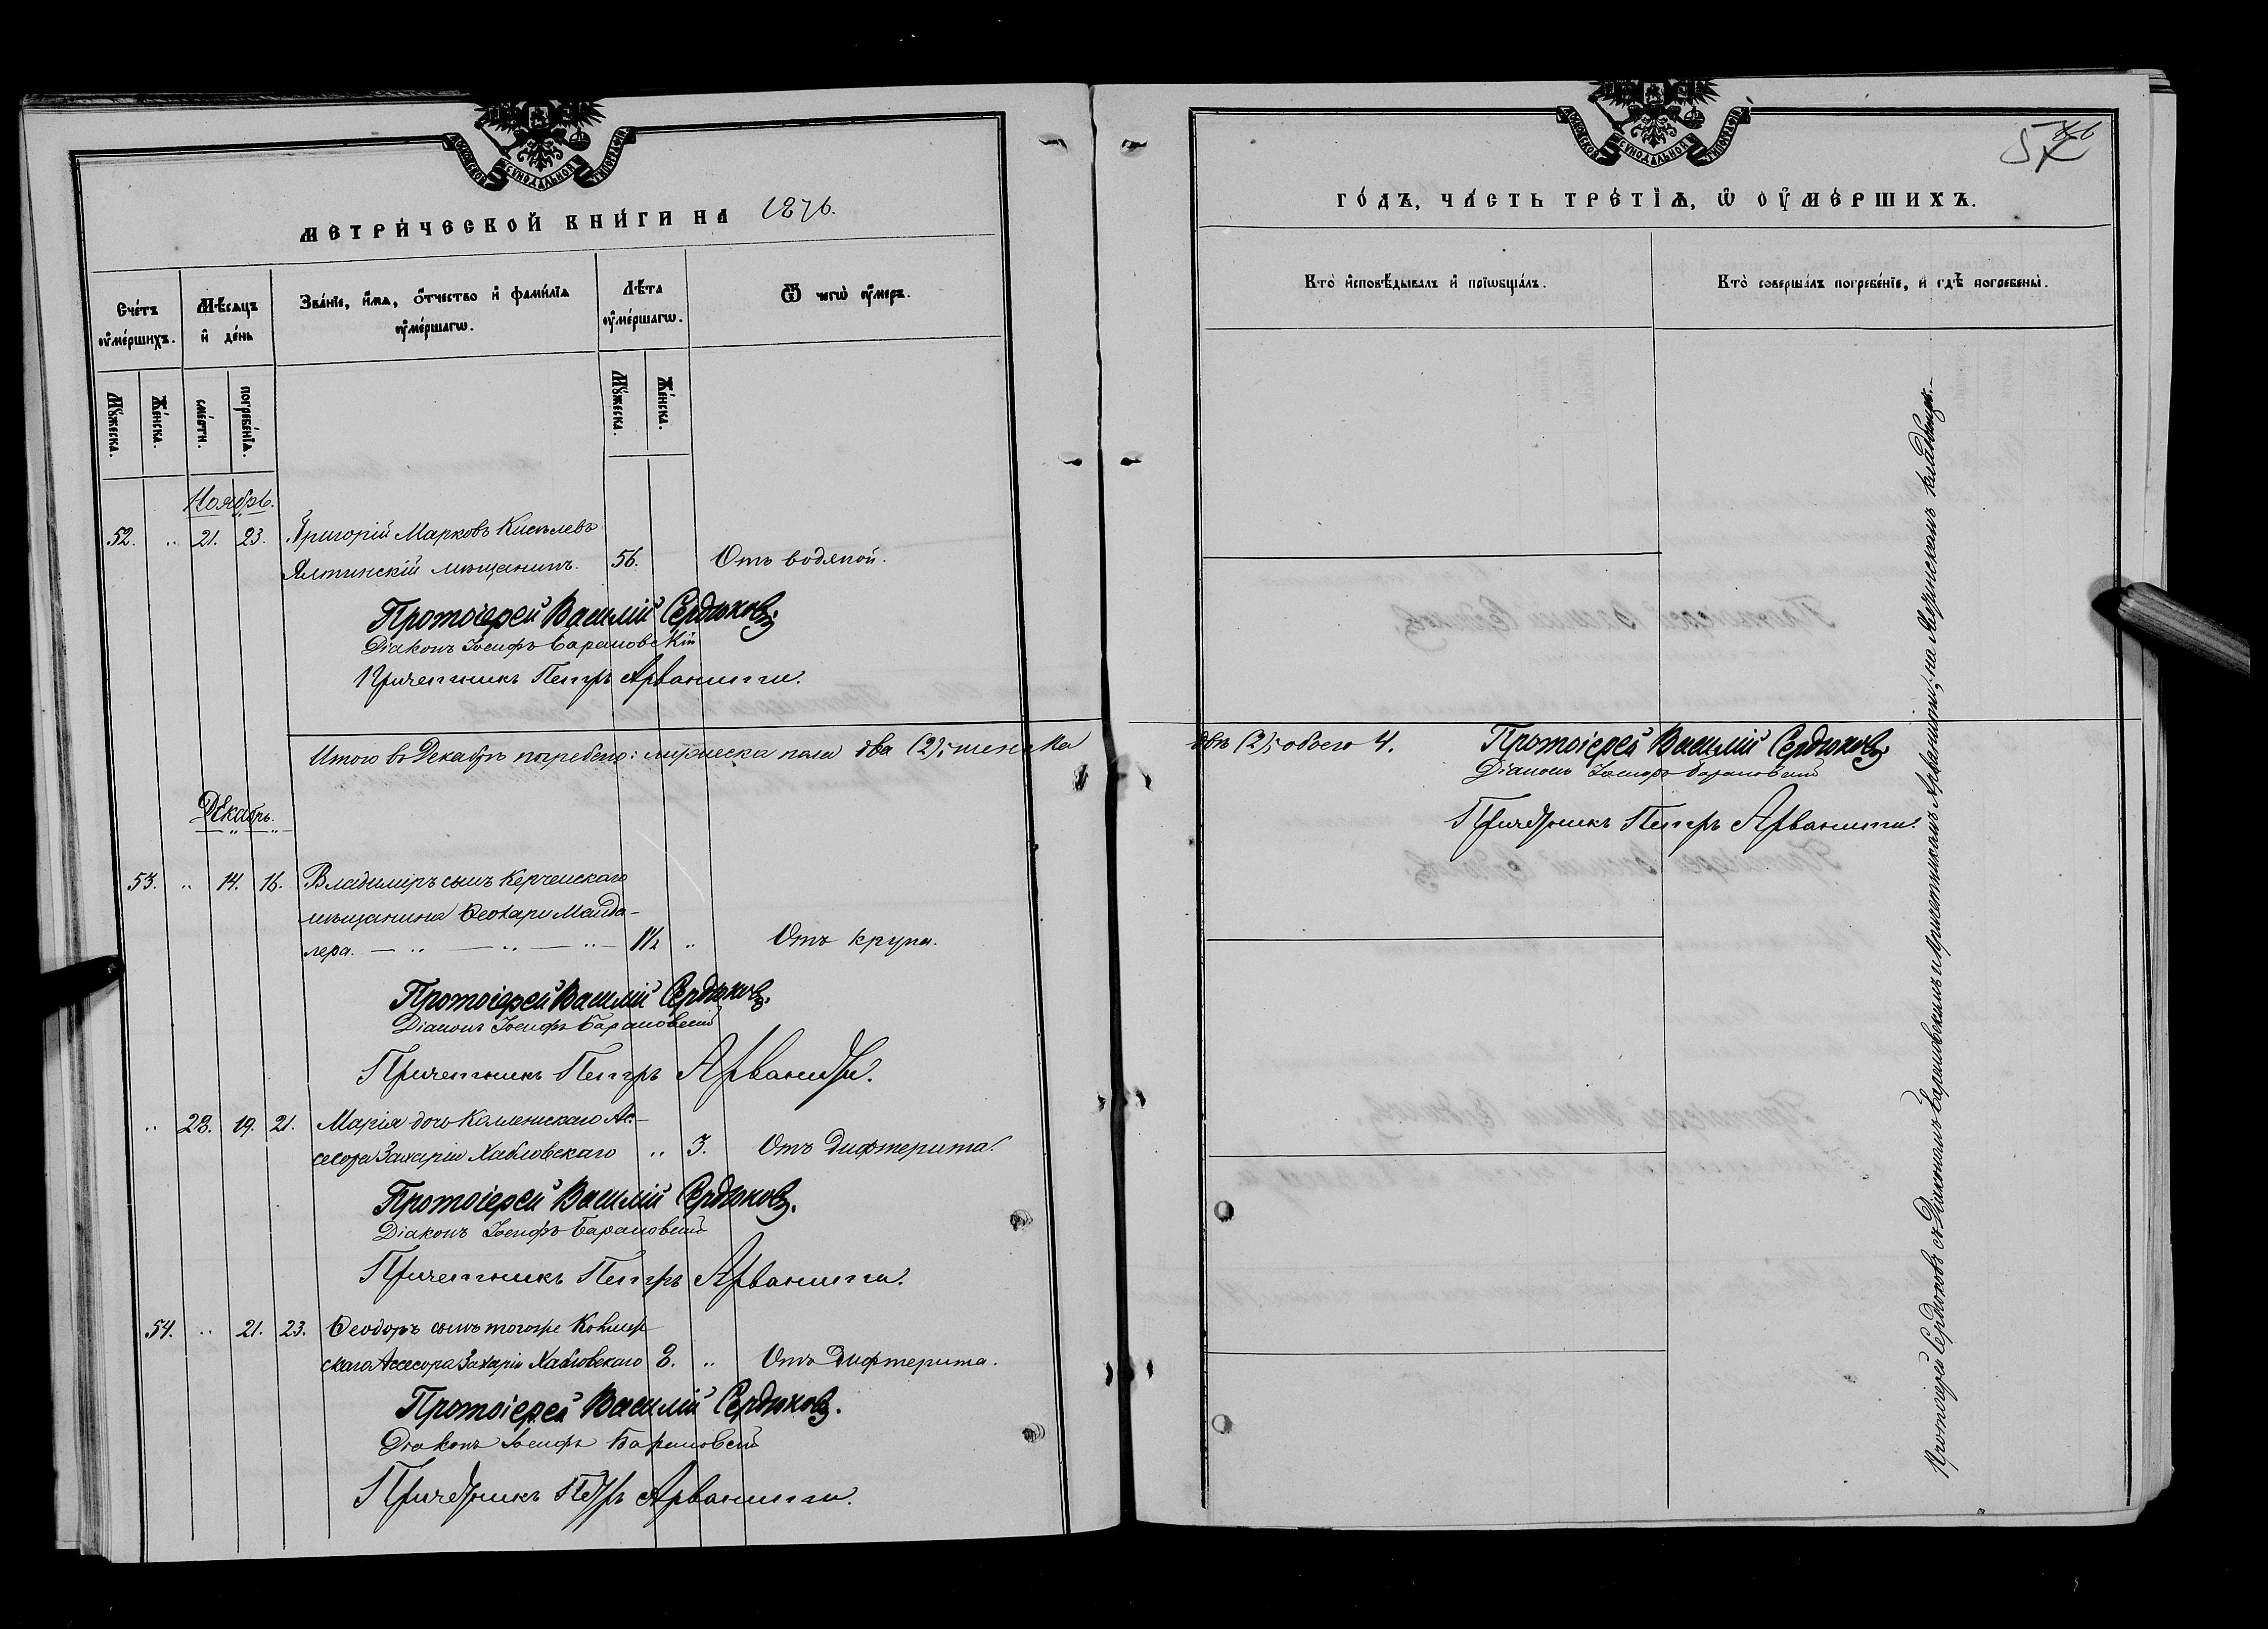 МОСКОВСКОЙ СѴНОДАЛЬНОЙ ТИПОГРАФІИ
МЕТРИ́ЧЕСКОЙ КНИ́ГИ НА 1876.
Сче́тъ ᲂу҆ме́ршихъ.
Мѣ́сяцъ и҆ де́нь
Зва́нїе, и҆́мѧ, ѻ҆́тчество и҆ фами́лїѧ ᲂу҆ме́ршагѡ.
Лѣ́та ᲂу҆ме́ршагѡ.
Ѿ чегѡ̀ ᲂу҆́меръ.
Мꙋ́жеска.
Же́нска.
сме́рти.
погребе́нїѧ.
Мꙋ́жеска.
Же́нска.
Ноябрь.
52. „ 21. 23. Григорій Марковъ Киселевъ
Ялтинскій мѣщанинъ. 56. Отъ водяной.
Протоіерей Василій Сердюковъ.
Діаконъ Іосифъ Барановскій
Причетникъ Петръ Арванити.
Итого въ Декабрѣ погребено: мужеска пола два (2); женска
Декабрь.
53. „ 14. 16. Владиміръ сынъ Керченскаго
мѣщанина Ѳеохари Майда-
лера. 1½ „ Отъ крупа.
Протоіерей Василій Сердюковъ.
Діаконъ Іосифъ Барановскій
Причетникъ Петръ Арванити.
„ 28. 19. 21. Марія дочь Коллежскаго Ас-
сесора Захарія Хабловскаго „ 3. Отъ Дифтерита.
Протоіерей Василій Сердюковъ.
Діаконъ Іосифъ Барановскій
Причетникъ Петръ Арванити.
54. „ 21. 23. Ѳеодоръ сынъ тогоже Коллеж-
скаго Ассесора Захарія Хабловскаго 2. „ Отъ Дифтерита.
Протоіерей Василій Сердюковъ.
Діаконъ Іосифъ Барановскій
Причетникъ Петръ Арванити.
МОСКОВСКОЙ СѴНОДАЛЬНОЙ ТИПОГРАФІИ
ГО́ДЪ, ЧА́СТЬ ТРЕ́ТЇѦ, Ѡ҆ ОУ҆МЕ́РШИХЪ.
Кто̀ и҆сповѣ́дывалъ и҆ прїѡбща́лъ.
Кто̀ соверша́лъ погребе́нїе, и҆ гдѣ̀ погребены̀.
двѣ (2); обоего 4.
Протоіерей Василій Сердюковъ.
Діаконъ Іосифъ Барановскій
Причетникъ Петръ Арванити.
Протоіерей Сердюковъ съ Діакономъ Барановскимъ и Причетникомъ Арванити; на кладбищѣ.